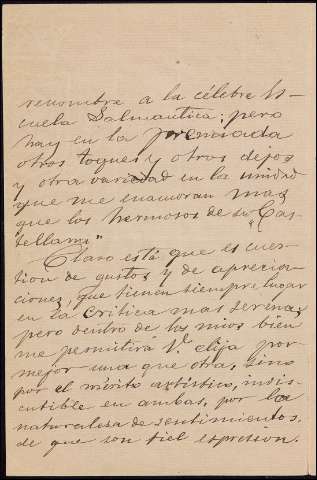 renombre a la célebre Es-
cuela Salmantica; pero
hay en la premiada
otros toques y otros dejos
y otra variedad en la unidad
que me enamoran mas
que los hermosos de su "Cas-
tellana"
Claro está que es cues-
tion de gustos y de aprecia-
ciones, que tienen siempre lugar
en la critica mas serena;
pero dentro de los mios bien
me permitirá V. elija por
mejor una que otra, sino
por el mérito artístico, indis-
cutible en ambas, por la
naturalesa de sentimientos,
de que son fiel expresion.